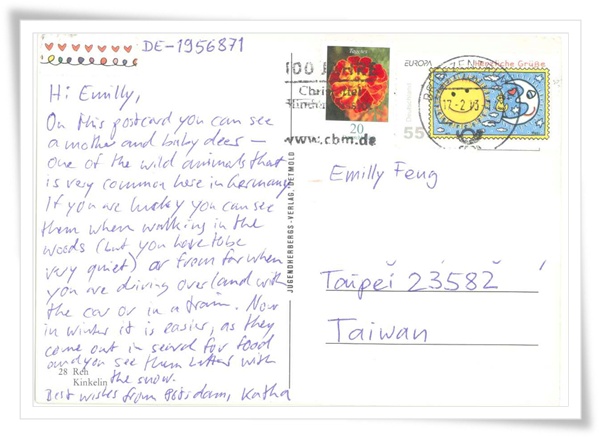 DE-1956871
Hi Emilly,
On this postcard you can see
a mother and baby deer –
one of the wild animals that
is very common here in Germany
If you are lucky you can see
them when walking in the
woods (but you have to be
very quiet) or from far when
you are driving over land with
the car or in a train. Now
in winter it is easier, as they
come out in search for food
and you see them better with
the snow.
28 Reh
Kinkelin
Best wishes from Potsdam, Katha
JUGENDHERBERGS-VERLAG, DETMOLD
100 JAHRE
www.cbm.de
20
EUROPA
Herzliche Grüße
Deutschland
55
Emilly Feng
Taipei 23582
Taiwan